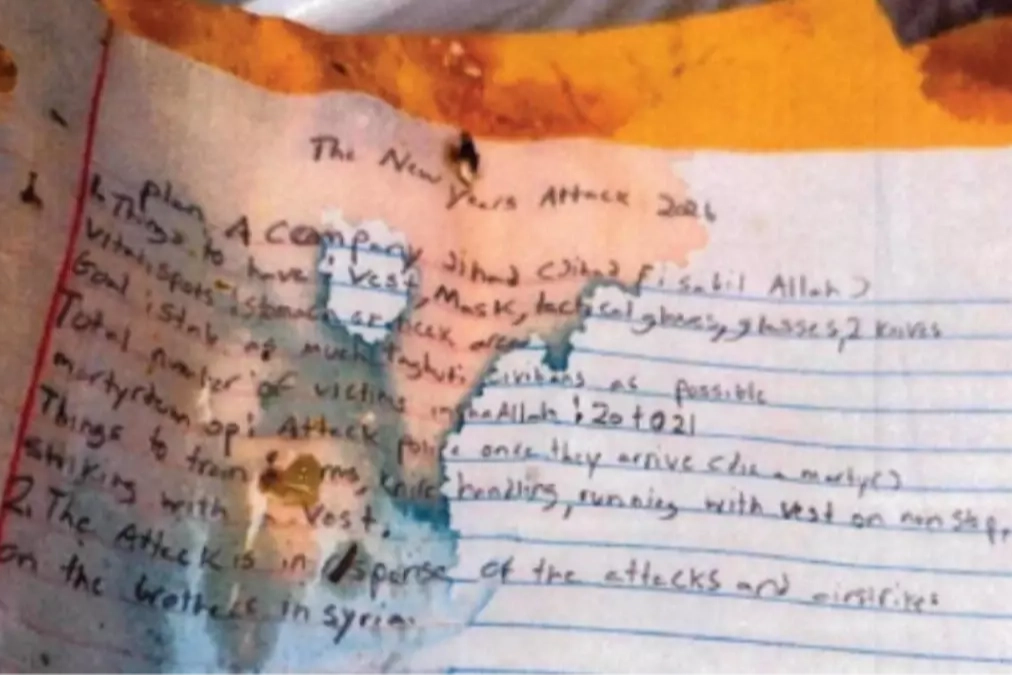 The New Years Attack 2026
1. Plan A Company Jihad (Jihad Fi sabil Allah)
Things to have : Vest, Mask, tactical gloves, glasses, 2 knives
Vital spots stomach or neck area
Goal : stab as much taghuti civilians as possible
Total number of victims inshaAllah : 20 to 21
martyrdom op: Attack police once they arrive (die a martyr)
Things to train : arms, knife handling, running with vest on non stop,
striking with a vest,
2. The Attack is in of the attacks and airstrikes
on the brothers in syria.